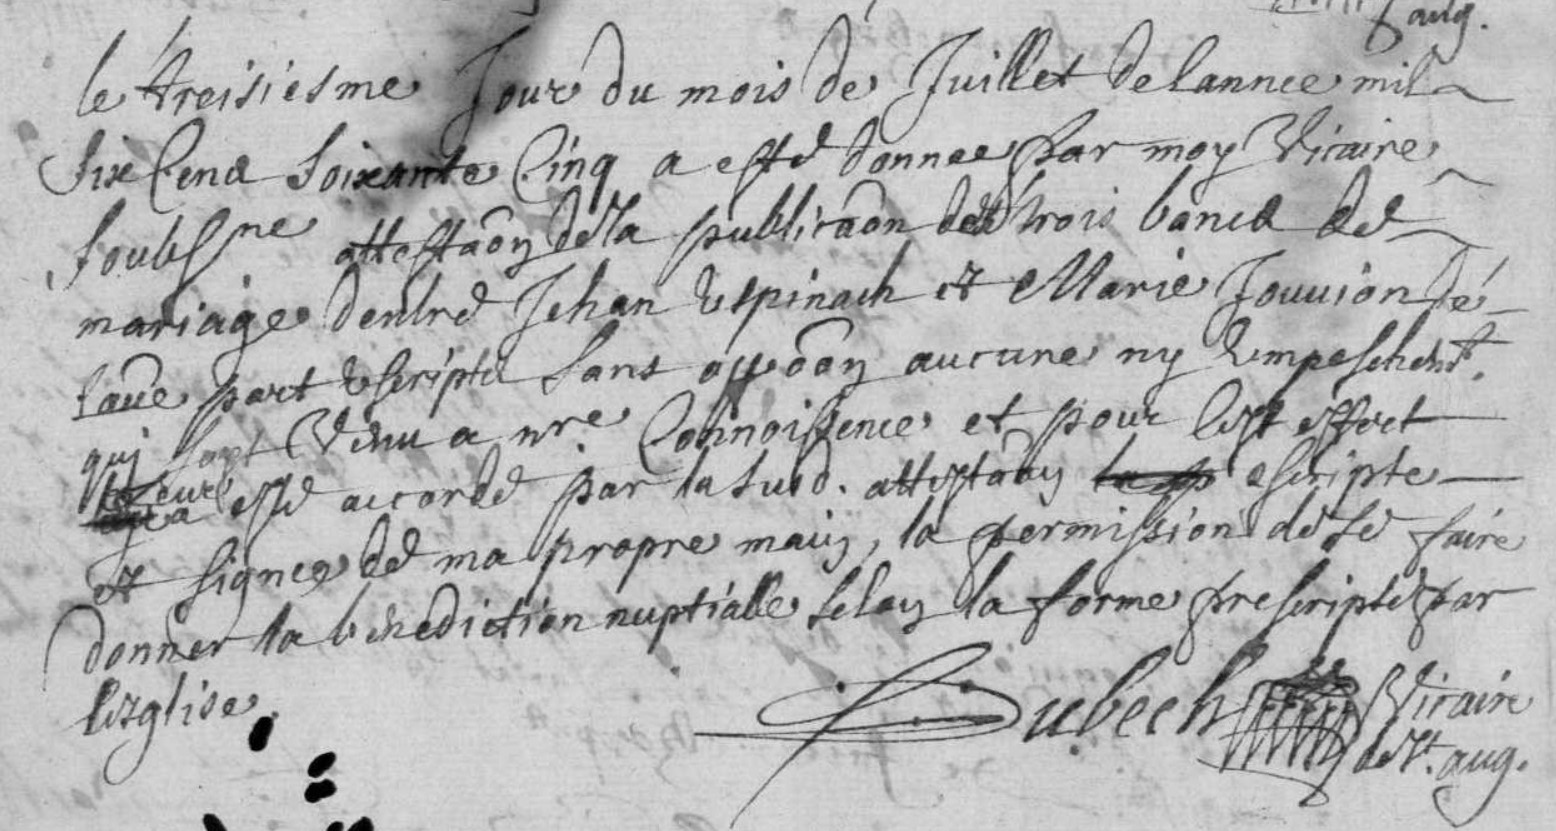 aug.
le treisiesme Jour du mois de Juillet de lannee mil
six Cend soixante Cinq a esté donnee par moy Vicaire
soubsne attestaon de la publicaon des trois bancd de
mariage dentre Jehan Espinach et Marie Jouuion de
laue part escripte sans oppoon aucune ny Empeschemt.
qui soyt Venu a nre Connoissence et pour Cest effect
leur a esté accordé par la susd. attestaon escripte
et signee de ma propre main, la permission de se faire
donner la benediction nuptialle selon la forme prescripte par
lezglise.
Dubech Vicaire
de St. aug.